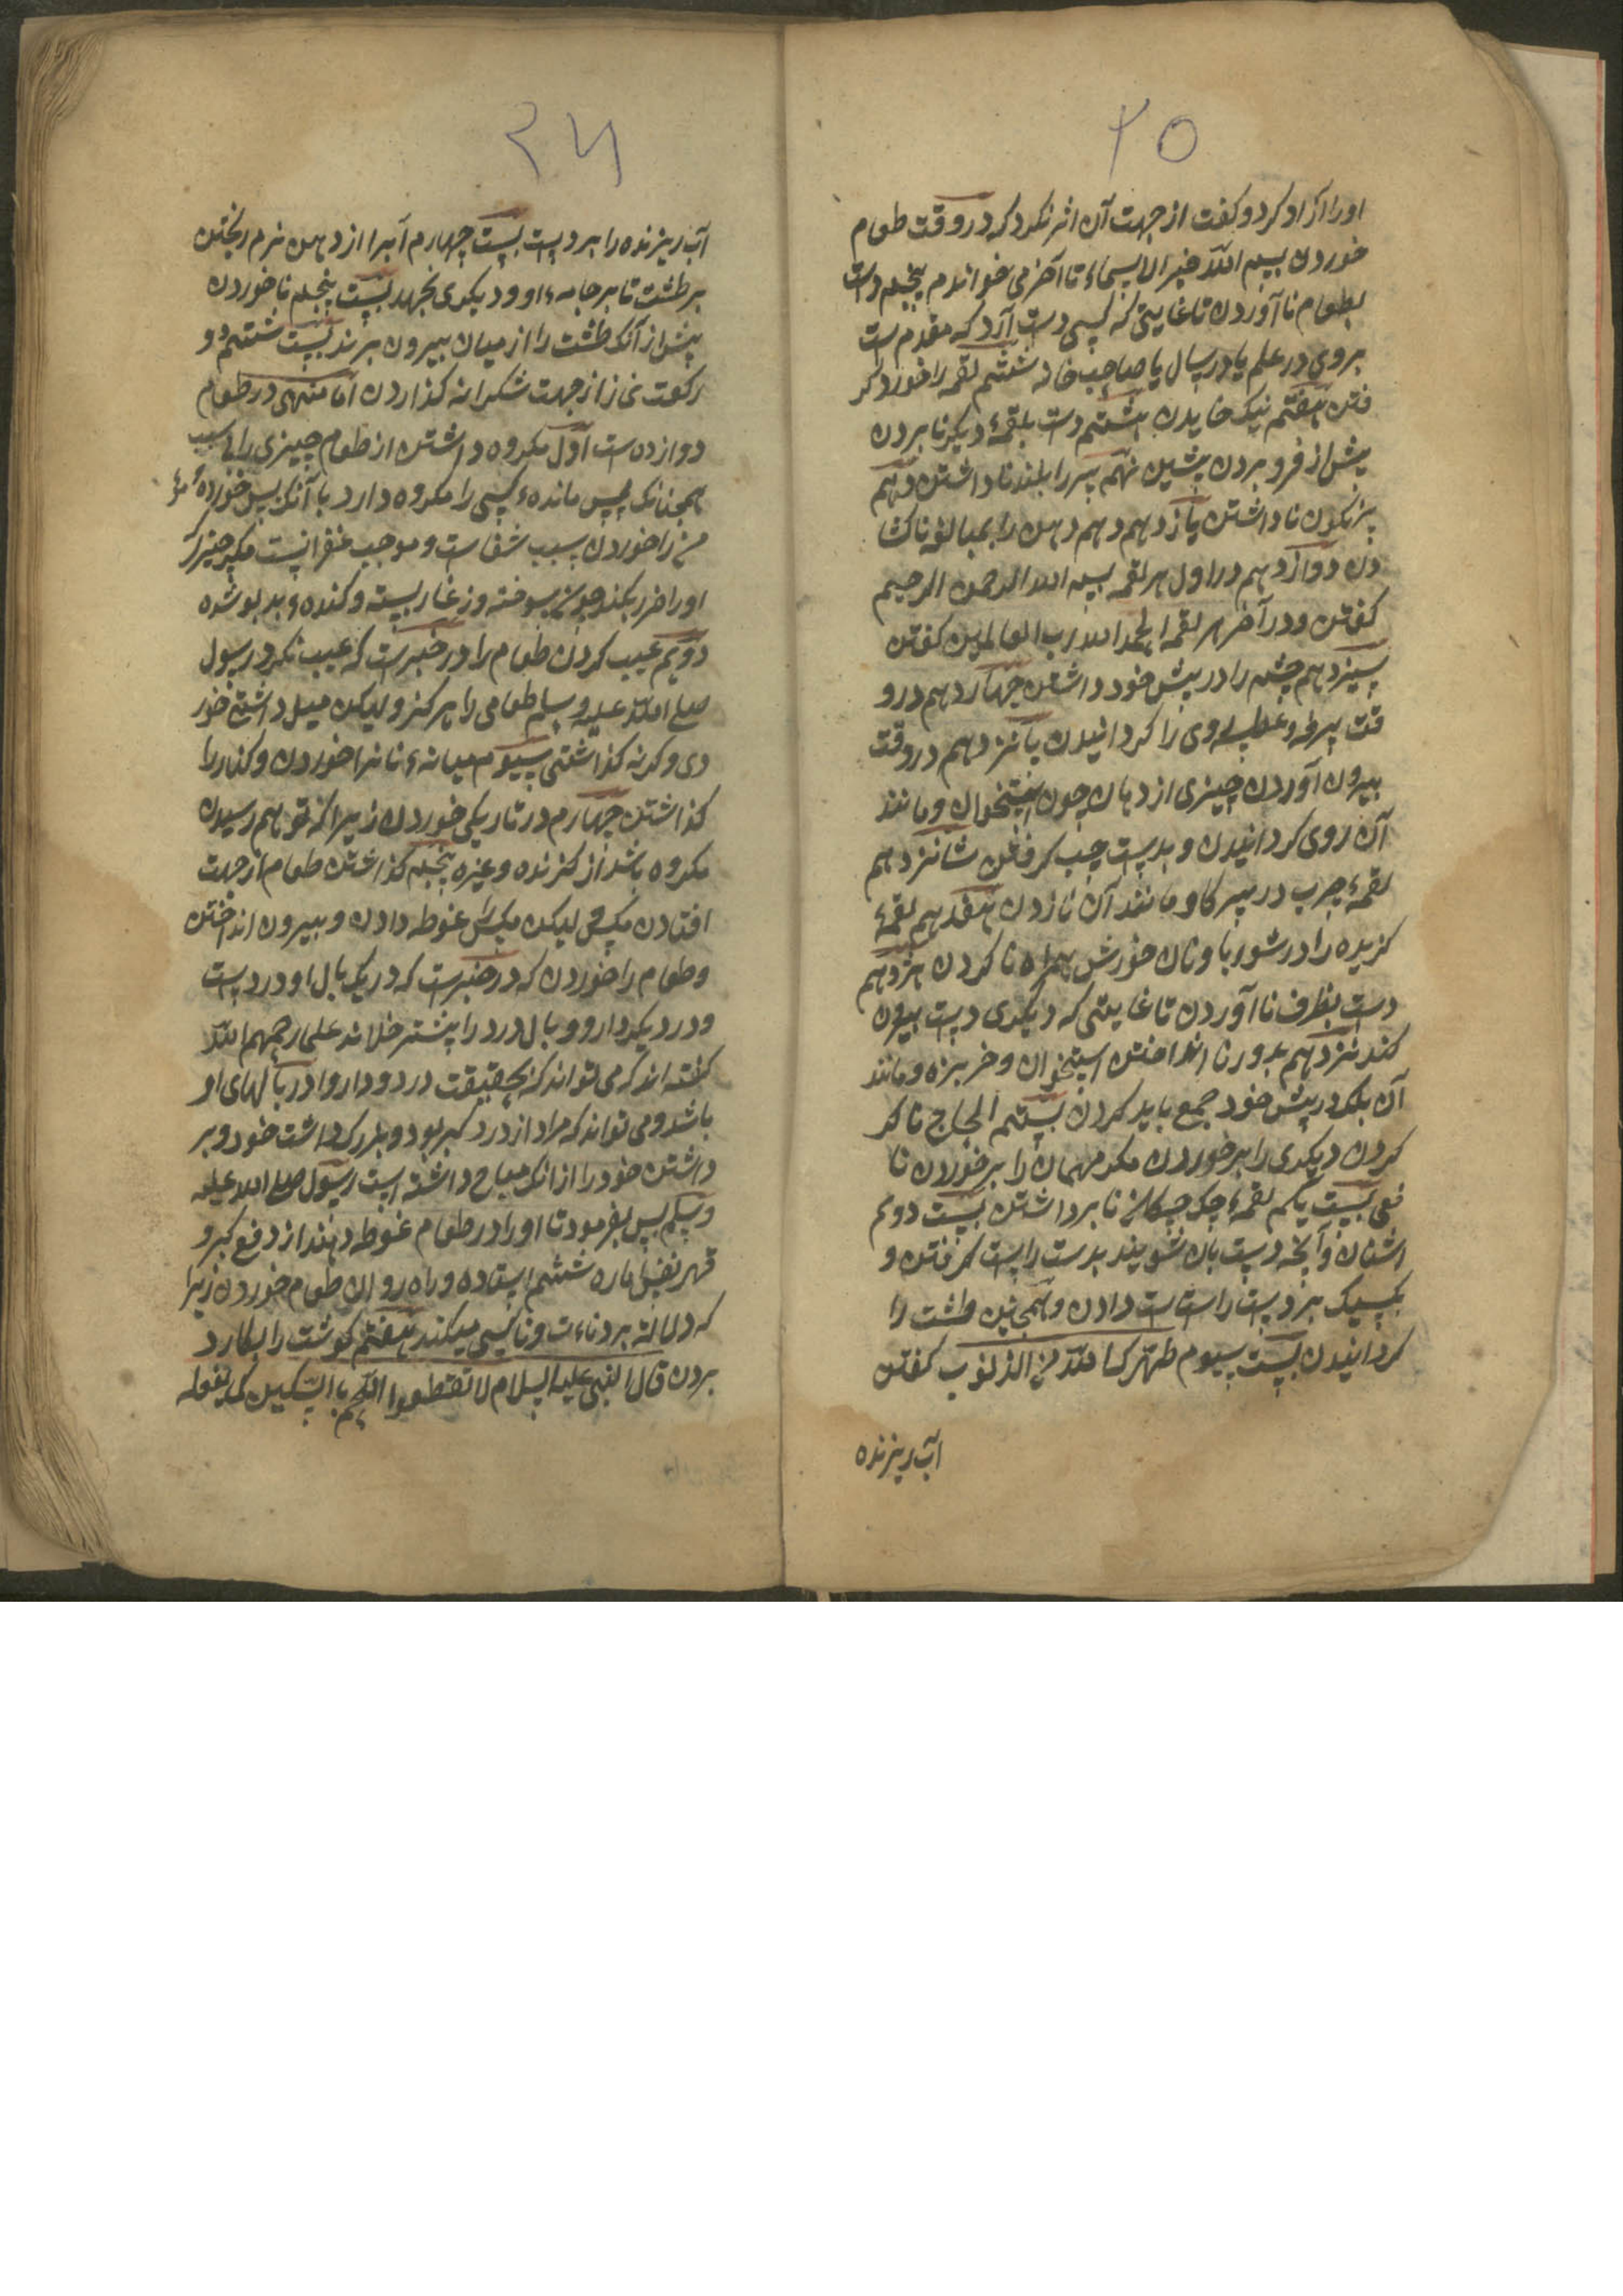 ۲۵
اورا آزاد کرد و کفت از جهت آن اثر نکرد که در وقت طعام
خوردن بسم الله خیر الاسماء تا آخر می خواندم پنجم دست
بطعام نا آوردن تا غایتی که کسی دست آرد که مقدم ست
بروی در علم یا در سال یا صاحب خانه ششم لقمه را خورد کر
فتن هفتم نیک خاییدن هشتم دست بلقمهٔ دیکر نا بردن
پیش از فرو بردن پیشین نهم سر را بلند نا داشتن دهم
سر نکون نا داشتن یازدهم دهن را بمبالغه ناکشا
دن دوازدهم در اول هر لقمه بسم الله الرحمن الرحیم
کفتن و در آخر هر لقمه الحمد لله رب العالمین کفتن
سیزدهم چشم را در پیش خود داشتن چهاردهم در و
قت سرفه و عطسه روی را کردانیدن پانزدهم در وقت
بیرون آوردن چیزی از دهان چون استخوان و مانند
آن روی کردانیدن و بدست چپ کرفتن شانزدهم
لقمهٔ چرب در سرکا و مانند آن نا زدن هفدهم لقمهٔ
کزیده را در شوربا و نان خورش همراه نا کردن هژدهم
دست بظرف نا آوردن تا غایتی که دیکری دست بیرون
کند نزدهم بدور نا انداختن استخوان و خربزه و مانند
آن بلکه در پیش خود جمع باید کردن بیستم الحاح نا کر
کردن دیکری را بر خوردن مکر مهمان را بر خوردن نا
فی بیست یکم لقمهٔ نا برداشتن بیست دوم
اشنان و آنچه دست بان شویند بدست راست کرفتن و
بکسیک بر دست راست است دادن و همچنین طشت را
کردانیدن بیست سیوم طهرک الله من الذنوب کفتن
آب ریزنده
۲۶
آب ریزنده را بر دست بیست چهارم آبرا از دهن نرم ریختن
بر طشت تا بر جامهٔ او و دیکری نجهد بیست پنجم نا خوردن
پیش از آنک طشت را از میان بیرون برند بیست ششم دو
رکعت نماز از جهت شکرانه کذاردن اما منهی در طعام
دوازده ست اول مکروه داشتن از طعام چیزی را بی سبب
همچنانک پس ماندهٔ کسی را مکروه دارد با آنک پس خوردهٔ مؤ
من را خوردن سبب شفا ست و موجب غفرانست مکر چیزی کی
اورا ضرر بکند چون سوخته و زغار بسته و کنده و بد بو شده
دویم عیب کردن طعام را در خبرست که عیب نکرد رسول
صلی الله علیه و سلم طعامی را هرکز و لیکن میل داشتی خور
دی وکرنه کذاشتی سیوم میانهٔ نانرا خوردن و کنار را
کذاشتن چهارم در تاریکی خوردن زیرا که توهم رسیدن
مکروه باشد از کزنده و غیره پنجم کذاشتن طعام از جهت
افتادن مکس لیکن مکس غوطه دادن و بیرون انداختن
و طعام را خوردن که در خبرست که در یک بال او درد ست
و در دیکر دارو و بال درد را پیشتر خلاند علما رحمهم الله
کفته اند که می تواند که بحقیقت درد و دارو در بالهای او
باشد و می تواند که مراد از درد کبر بود و بزرک داشت خود و بر
داشتن خود را از انک مباح داشته است رسول صلی الله علیه
و سلم پس بفرمود تا اورا در طعام غوطه دهند از دفع کبر و
قهر نفس اماره ششم ایستاده و راه روان طعام خوردن زیرا
که دلالة بر دناءت و ناکسی میکند هفتم کوشت را بکارد
بردن قال النبی علیه السلام لا تقطعوا اللحم بالسکین کما یفعله